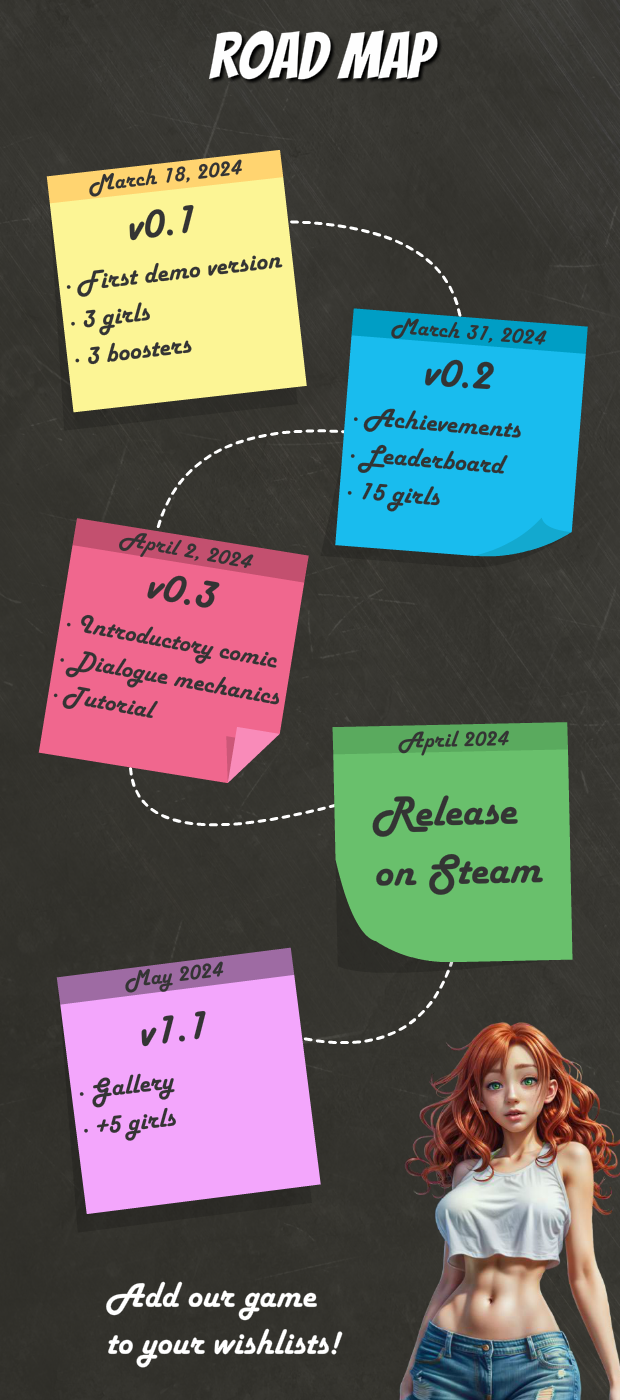 ROAD MAP
March 18, 2024
v0.1
· First demo version
· 3 girls
· 3 boosters
March 31, 2024
v0.2
· Achievements
· Leaderboard
· 15 girls
April 2, 2024
v0.3
· Introductory comic
· Dialogue mechanics
· Tutorial
April 2024
Release
on Steam
May 2024
v1.1
· Gallery
· +5 girls
Add our game
to your wishlists!